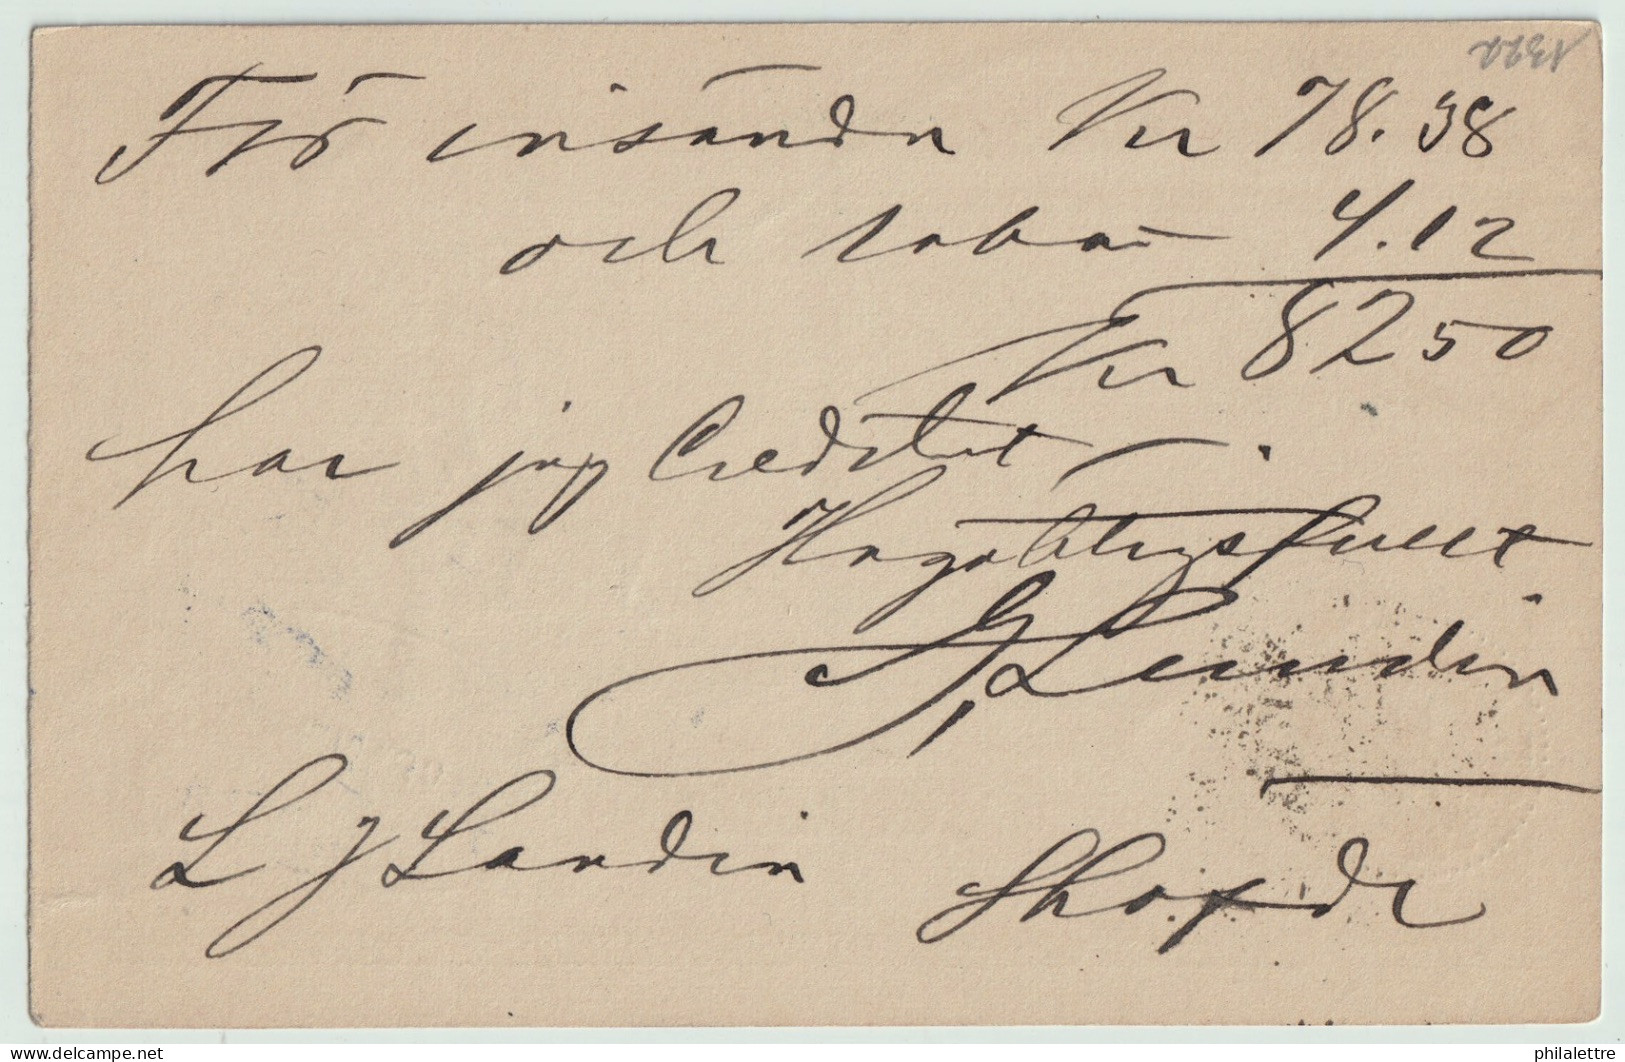 För insända Kr 78.38
och rabatt 4.12
Kr 82 50
har jag Crediterat
Högaktningsfullt
G Lundin
L J Landin Skofde
delcampe.net
philalettre